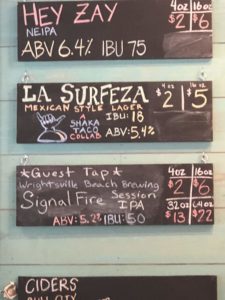 HEY ZAY
NEIPA
4oz 16oz
$2 $6
ABV 6.4% IBU 75
LA SURFEZA
MEXICAN STYLE LAGER
SHAKA TACO COLLAB
IBU: 18
ABV: 5.4%
$2 $5
*Guest Tap*
Wrightsville Beach Brewing
Signal Fire Session
IPA
ABV: 5.2% IBU: 50
4oz 16oz
$2 $6
32oz 64oz
$13 $22
CIDERS